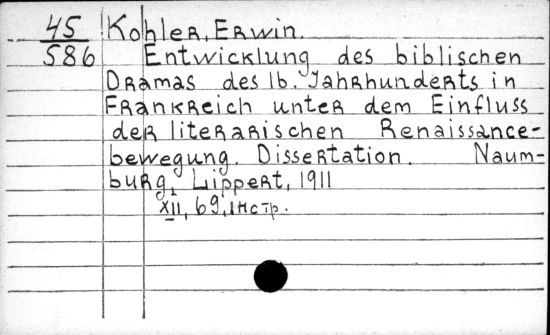 45 Kohler, Erwin.
586 Entwicklung des biblischen
Dramas des 16. Jahrhunderts in
Frankreich unter dem Einfluss
der literarischen Renaissance-
bewegung. Dissertation. Naum-
burg, Lippert, 1911
XII, 69, 1 н стр.